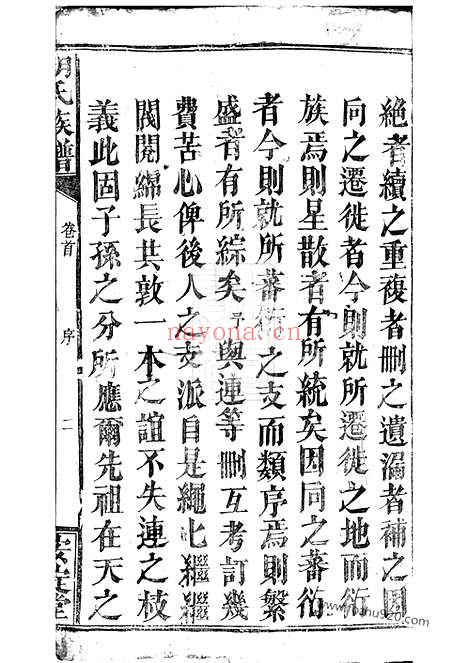 絶者續之重複者刪之遺漏者補之因
向之遷徙者今則就所遷徙之地而衍
族焉則星散者有所統矣因同之蕃衍
者今則就所蕃衍之支而類序焉則繁
盛者有所綜矣予與連等刪互考訂幾
費苦心俾後人之支派自是繩繩繼繼
閥閱綿長共敦一本之誼不失連之枝
義此固子孫之分所應爾先祖在天之
胡氏族譜
卷首
序
二
堂
nayona.cn